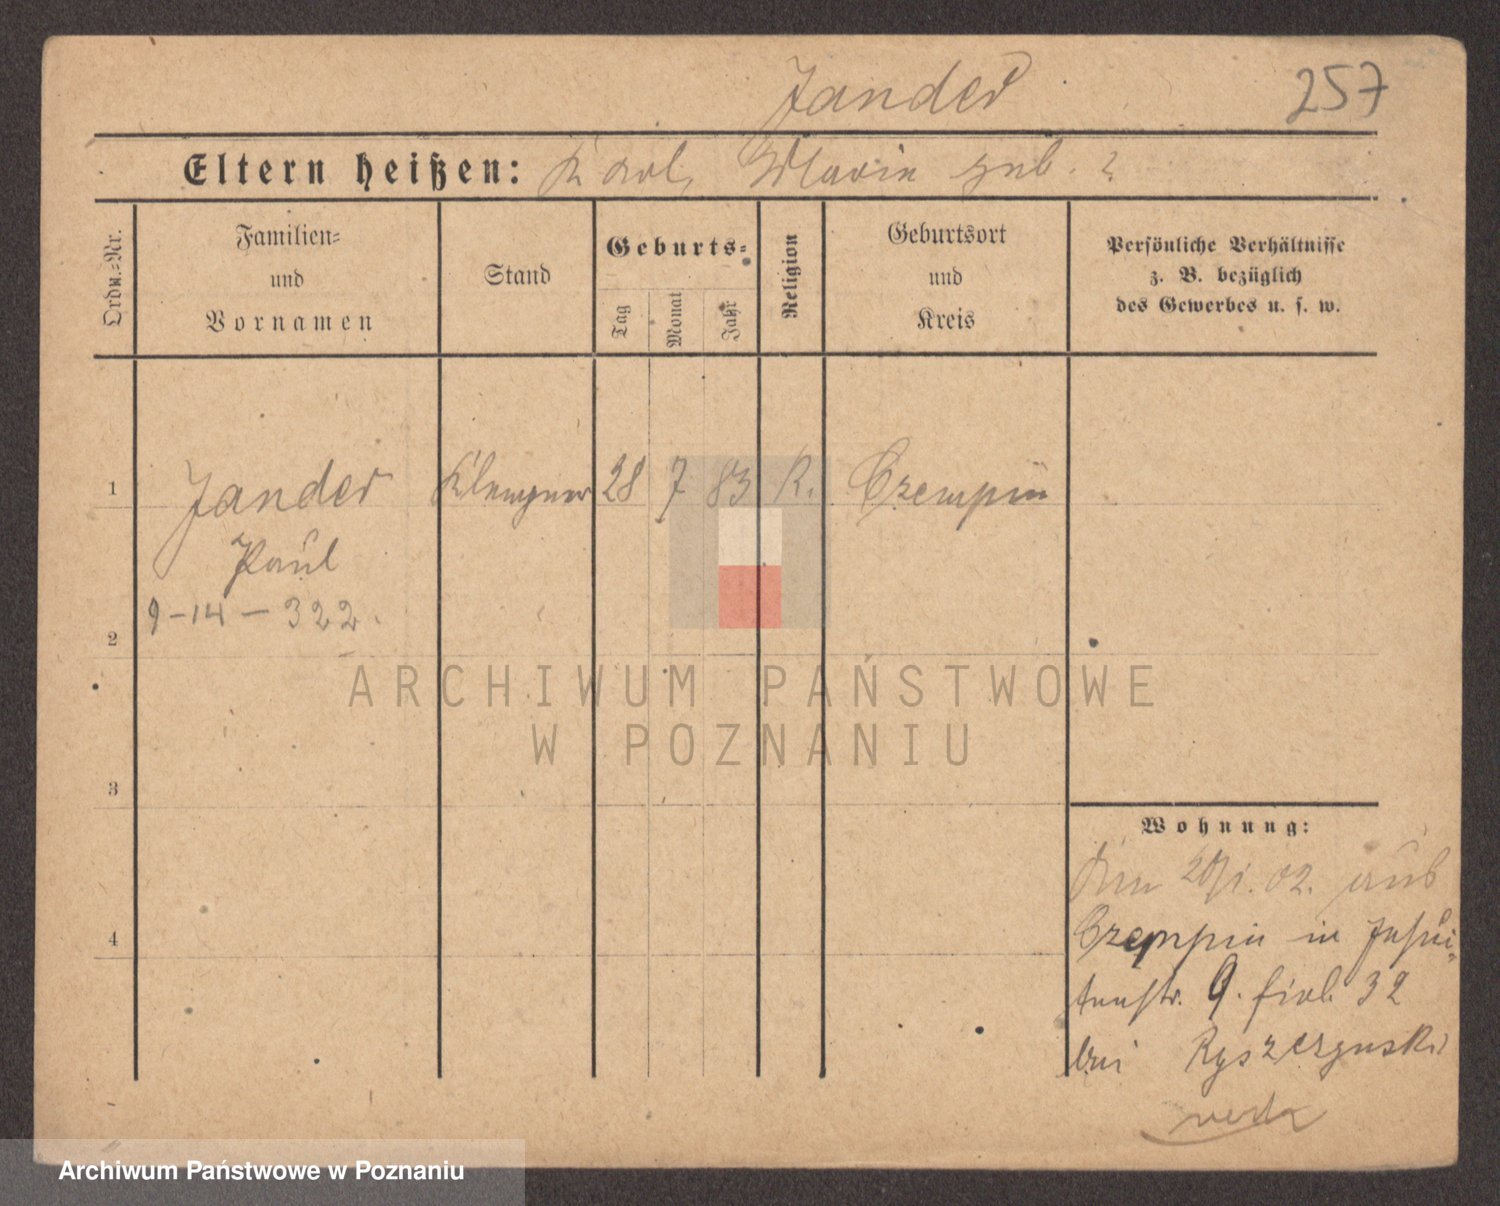 Jander
257
Eltern heißen: Karl, Marie geb. ?
Ordn.-Nr.
Familien-
und
Vornamen
Stand
Geburts-
Tag
Monat
Jahr
Religion
Geburtsort
und
Kreis
Persönliche Verhältnisse
z. B. bezüglich
des Gewerbes u. s. w.
1
Jander Klempner 28 7 83 K. Czempin
Paul
9-14-322.
2
3
4
ARCHIWUM PAŃSTWOWE
W POZNANIU
Wohnung:
02. aus
Czempin in Jesui-
tenstr. 9. 32
bei Ryszczynski
Archiwum Państwowe w Poznaniu